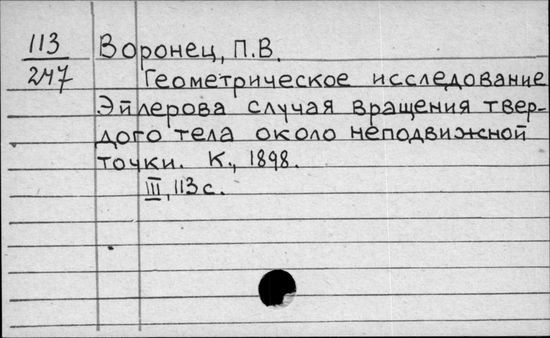 113
247
Воронец, П.В.
Геометрическое исследование
Эйлерова случая вращения твер-
дого тела около неподвижной
точки. К., 1898.
III, 113 с.